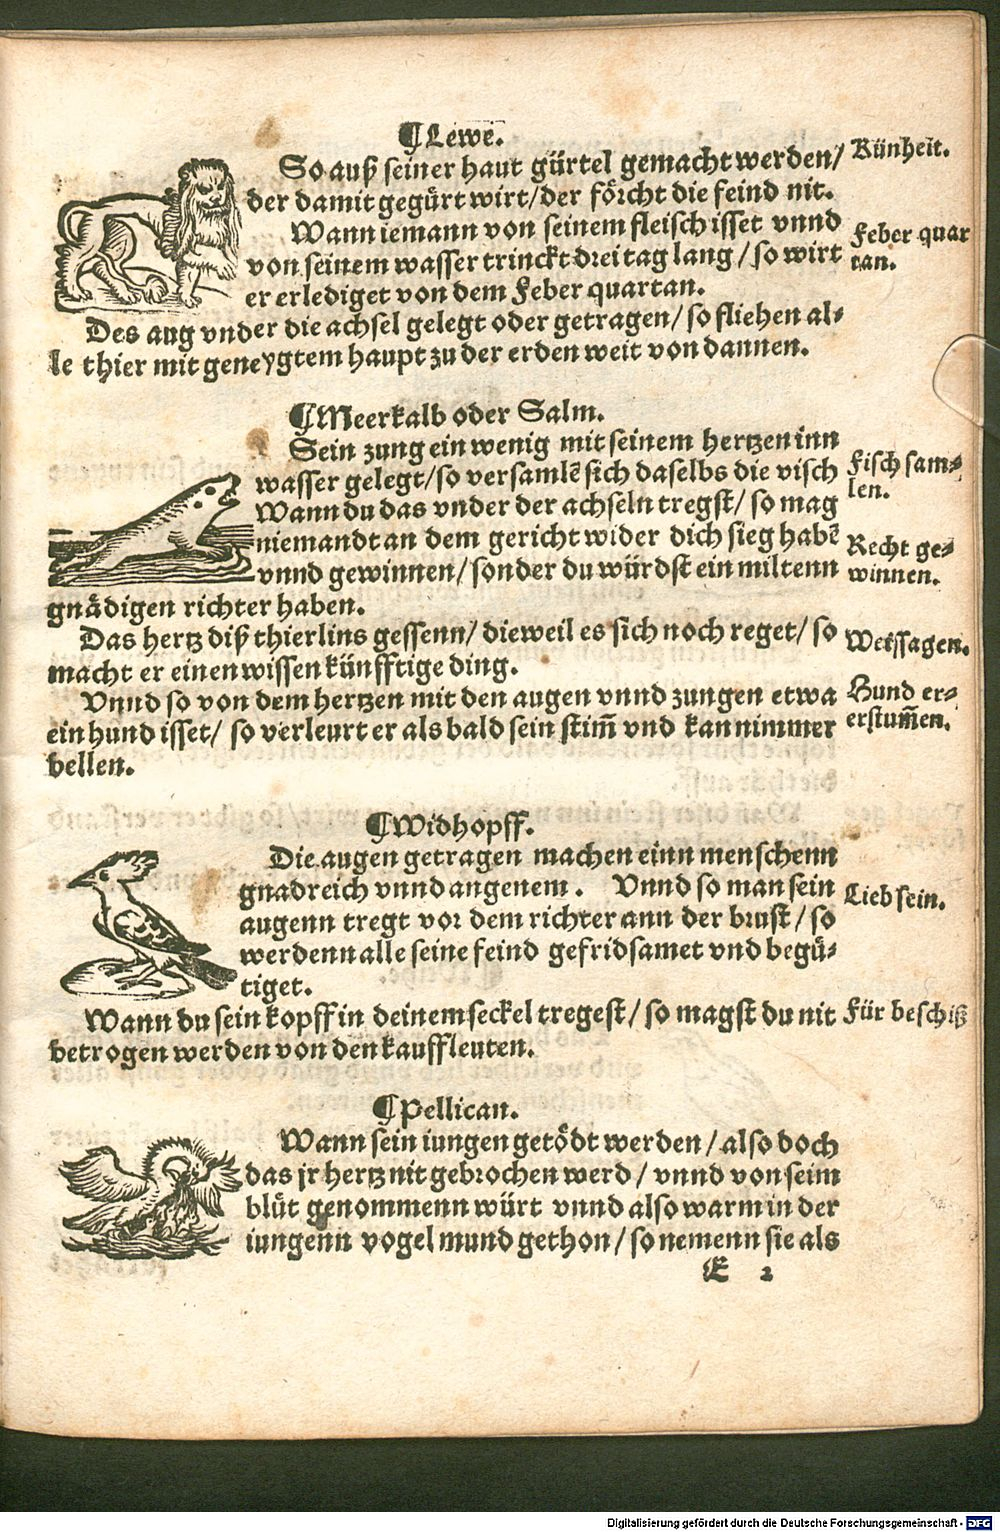 ¶Lewe.
So auß seiner haut gürtel gemacht werden/
Künheit.
der damit gegürt wirt/der förcht die feind nit.
Wann iemann von seinem fleisch isset vnnd
Feber quar
von seinem wasser trinckt drei tag lang/so wirt
tan.
er erlediget von dem Feber quartan.
Des aug vnder die achsel gelegt oder getragen/so fliehen al-
le thier mit geneygtem haupt zu der erden weit von dannen.
¶Meerkalb oder Salm.
Sein zung ein wenig mit seinem hertzen inn
wasser gelegt/so versamlē sich daselbs die visch
Fisch sam-
len.
Wann du das vnder der achseln tregst/so mag
niemandt an dem gericht wider dich sieg habē
Recht ge-
vnnd gewinnen/sonder du würdst ein miltenn
winnen.
gnädigen richter haben.
Das hertz diß thierlins gessenn/dieweil es sich noch reget/so
Weissagen.
macht er einen wissen künfftige ding.
Vnnd so von dem hertzen mit den augen vnnd zungen etwa
Hund er-
ein hund isset/so verleurt er als bald sein stim̄ vnd kan nimmer
erstum̄en.
bellen.
¶Widhopff.
Die augen getragen machen einn menschenn
gnadreich vnnd angenem. Vnnd so man sein
Lieb sein.
augenn tregt vor dem richter ann der brust/so
werdenn alle seine feind gefridsamet vnd begü-
tiget.
Wann du sein kopff in deinem seckel tregest/so magst du nit
Für beschiß
betrogen werden von den kauffleuten.
¶Pellican.
Wann sein iungen getödt werden/also doch
das jr hertz nit gebrochen werd/vnnd von seim
blüt genommenn würt vnnd also warm in der
iungenn vogel mund gethon/so nemenn sie als
E 2
Digitalisierung gefördert durch die Deutsche Forschungsgemeinschaft - DFG